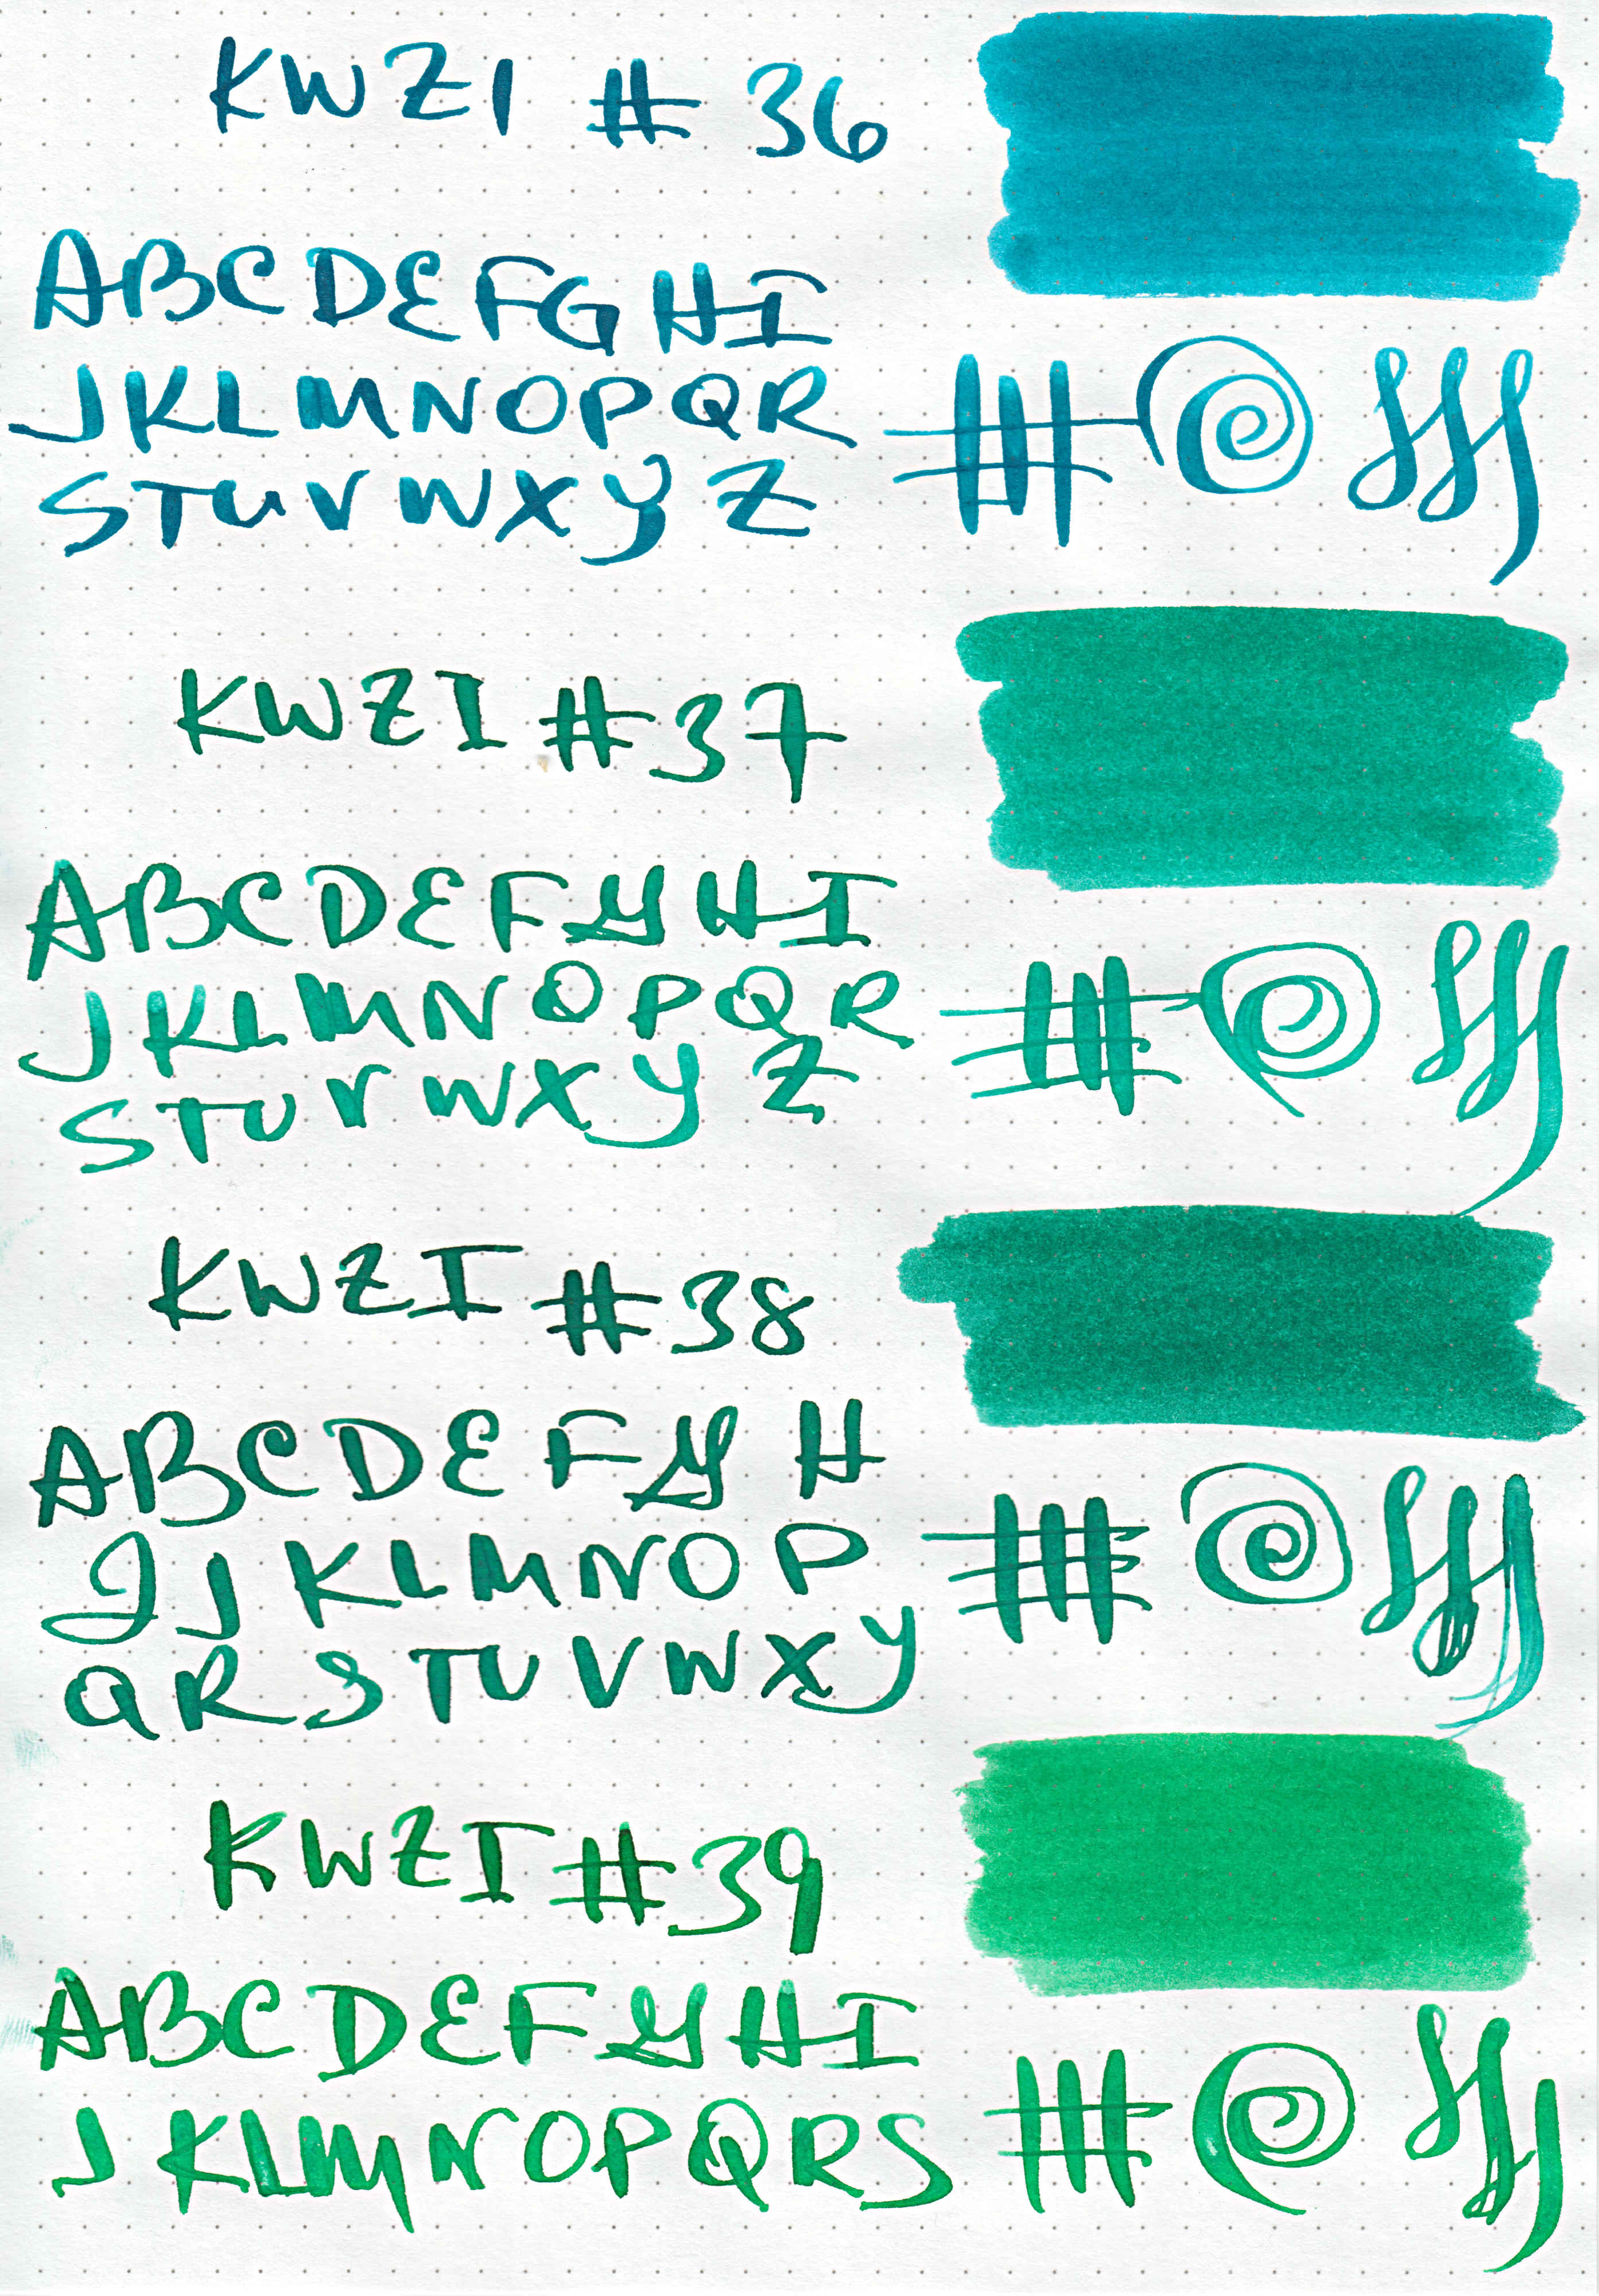 KWZI # 36
ABCDEFGHI
JKLMNOPQR
STUVWXYZ
KWZI #37
ABCDEFGHI
JKLMNOPQR
STUVWXYZ
KWZI #38
ABCDEFGH
IJKLMNOP
QRSTUVWXY
KWZI #39
ABCDEFGHI
JKLMNOPQRS